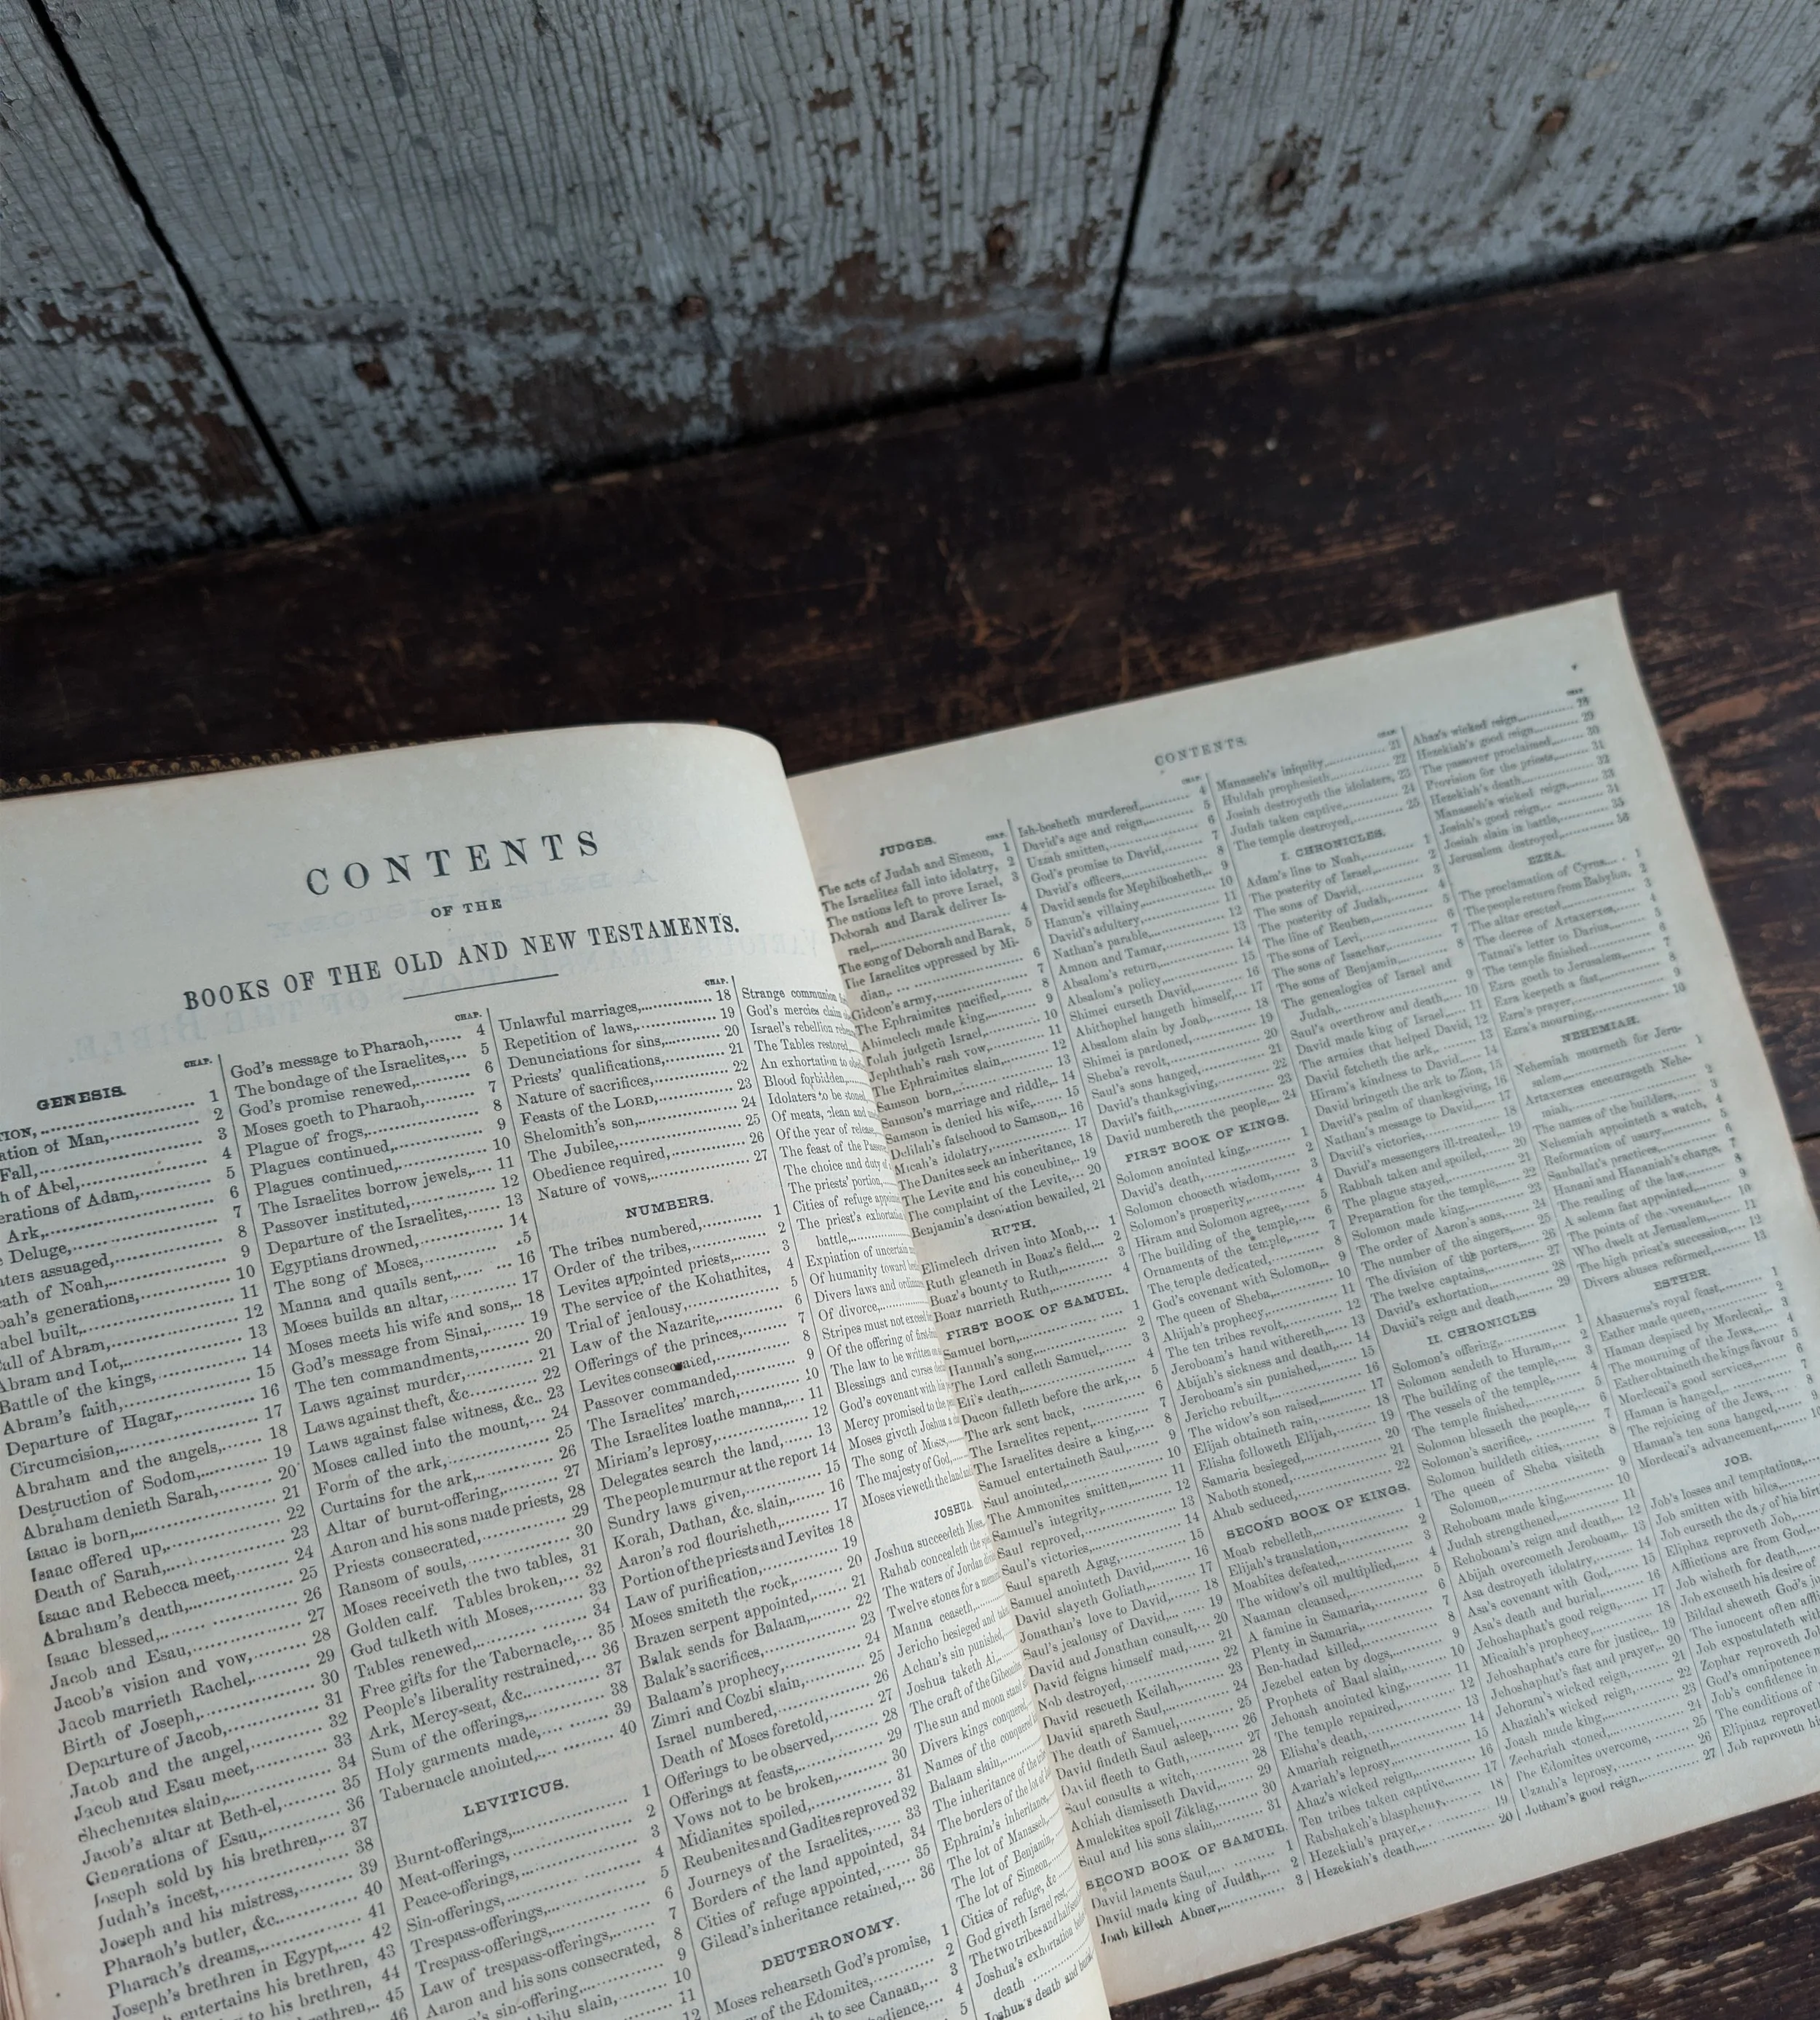 CONTENTS
OF THE
BOOKS OF THE OLD AND NEW TESTAMENTS.
CHAP.
GENESIS.
1
ation of Man, 2
Fall, 3
h of Abel, 4
erations of Adam, 5
Ark, 6
Deluge, 7
aters assuaged, 8
eath of Noah, 9
oah's generations, 10
abel built, 11
all of Abram, 12
Abram and Lot, 13
Battle of the kings, 14
Abram's faith, 15
Departure of Hagar, 16
Circumcision, 17
Abraham and the angels, 18
Destruction of Sodom, 19
Abraham denieth Sarah, 20
Isaac is born, 21
Isaac offered up, 22
Death of Sarah, 23
Isaac and Rebecca meet, 24
Abraham's death, 25
Isaac blessed, 26
Jacob and Esau, 27
Jacob's vision and vow, 28
Jacob marrieth Rachel, 29
Birth of Joseph, 30
Departure of Jacob, 31
Jacob and the angel, 32
Jacob and Esau meet, 33
Shechemites slain, 34
Jacob's altar at Beth-el, 35
Generations of Esau, 36
Joseph sold by his brethren, 37
Judah's incest, 38
Joseph and his mistress, 39
Pharaoh's butler, &c. 40
Pharaoh's dreams, 41
Joseph's brethren in Egypt, 42
entertains his brethren, 43
to his brethren, 44
45
46
CHAP.
God's message to Pharaoh, 4
The bondage of the Israelites, 5
God's promise renewed, 6
Moses goeth to Pharaoh, 7
Plague of frogs, 8
Plagues continued, 9
Plagues continued, 10
The Israelites borrow jewels, 11
Passover instituted, 12
Departure of the Israelites, 13
Egyptians drowned, 14
The song of Moses, 15
Manna and quails sent, 16
Moses builds an altar, 17
Moses meets his wife and sons, 18
God's message from Sinai, 19
The ten commandments, 20
Laws against murder, 21
Laws against theft, &c. 22
Laws against false witness, &c. 23
Moses called into the mount, 24
Form of the ark, 25
Curtains for the ark, 26
Altar of burnt-offering, 27
Aaron and his sons made priests, 28
Priests consecrated, 29
Ransom of souls, 30
Moses receiveth the two tables, 31
Golden calf. Tables broken, 32
God talketh with Moses, 33
Tables renewed, 34
Free gifts for the Tabernacle, 35
People's liberality restrained, 36
Ark, Mercy-seat, &c. 37
Sum of the offerings, 38
Holy garments made, 39
Tabernacle anointed, 40
LEVITICUS.
Burnt-offerings, 1
Meat-offerings, 2
Peace-offerings, 3
Sin-offerings, 4
Trespass-offerings, 5
Trespass-offerings, 6
Law of trespass-offerings, 7
Aaron and his sons consecrated, 8
sin-offering, 9
slain, 10
11
12
CHAP.
Unlawful marriages, 18
Repetition of laws, 19
Denunciations for sins, 20
Priests' qualifications, 21
Nature of sacrifices, 22
Feasts of the LORD, 23
Shelomith's son, 24
The Jubilee, 25
Obedience required, 26
Nature of vows, 27
NUMBERS.
The tribes numbered, 1
Order of the tribes, 2
Levites appointed priests, 3
The service of the Kohathites, 4
Trial of jealousy, 5
Law of the Nazarite, 6
Offerings of the princes, 7
Levites consecrated, 8
Passover commanded, 9
The Israelites' march, 10
The Israelites loathe manna, 11
Miriam's leprosy, 12
Delegates search the land, 13
The people murmur at the report 14
Sundry laws given, 15
Korah, Dathan, &c. slain, 16
Aaron's rod flourisheth, 17
Portion of the priests and Levites 18
Law of purification, 19
Moses smiteth the rock, 20
Brazen serpent appointed, 21
Balak sends for Balaam, 22
Balak's sacrifices, 23
Balaam's prophecy, 24
Zimri and Cozbi slain, 25
Israel numbered, 26
Death of Moses foretold, 27
Offerings to be observed, 28
Offerings at feasts, 29
Vows not to be broken, 30
Midianites spoiled, 31
Reubenites and Gadites reproved 32
Journeys of the Israelites, 33
Borders of the land appointed, 34
Cities of refuge appointed, 35
Gilead's inheritance retained, 36
DEUTERONOMY.
Moses rehearseth God's promise, 1
of the Edomites, 2
to see Canaan, 3
4
5
Strange communion
God's mercies claim
Israel's rebellion
The Tables restored,
An exhortation to
Blood forbidden,
Idolaters to be stoned,
Of meats, clean and
Of the year of release,
The feast of the
The choice and duty of
The priests' portion,
Cities of refuge
The priest's
battle,
Expiation of uncertain
Of humanity toward
Divers laws and
Of divorce,
Stripes must not exceed
Of the offering of
The law to be written on
Blessings and curses
God's covenant with
Mercy promised to the
Moses giveth Joshua a
The song of Moses,
The majesty of God,
Moses vieweth the land
JOSHUA
Joshua succeedeth Moses,
Rahab concealeth the
The waters of Jordan
Twelve stones for a
Manna ceaseth,
Jericho besieged and
Achan's sin punished,
Joshua taketh Ai,
The craft of the
The sun and moon stand
Divers kings conquered,
Names of the conquered
Balaam slain,
The inheritance of the
The borders of the lot of
Ephraim's inheritance,
The lot of Manasseh,
The lot of Benjamin,
The lot of Simeon,
Cities of refuge, &c
God giveth Israel rest,
The two tribes and
Joshua's exhortation
death
Joshua's death and
CONTENTS.
JUDGES. CHAP.
The acts of Judah and Simeon, 1
The Israelites fall into idolatry, 2
The nations left to prove Israel, 3
Deborah and Barak deliver Is-
rael, 4
The song of Deborah and Barak, 5
The Israelites oppressed by Mi-
dian, 6
Gideon's army, 7
The Ephraimites pacified, 8
Abimelech made king, 9
Tolah judgeth Israel, 10
Jephthah's rash vow, 11
The Ephraimites slain, 12
Samson born, 13
Samson's marriage and riddle, 14
Samson is denied his wife, 15
Delilah's falsehood to Samson, 16
Micah's idolatry, 17
The Danites seek an inheritance, 18
The Levite and his concubine, 19
The complaint of the Levite, 20
Benjamin's desolation bewailed, 21
RUTH.
Elimelech driven into Moab, 1
Ruth gleaneth in Boaz's field, 2
Boaz's bounty to Ruth, 3
Boaz marrieth Ruth, 4
FIRST BOOK OF SAMUEL.
Samuel born, 1
Hannah's song, 2
The Lord calleth Samuel, 3
Eli's death, 4
Dacon falleth before the ark, 5
The ark sent back, 6
The Israelites repent, 7
The Israelites desire a king, 8
Samuel entertaineth Saul, 9
Saul anointed, 10
The Ammonites smitten, 11
Samuel's integrity, 12
Saul reproved, 13
Saul's victories, 14
Saul spareth Agag, 15
Samuel anointeth David, 16
David slayeth Goliath, 17
Jonathan's love to David, 18
Saul's jealousy of David, 19
David and Jonathan consult, 20
David feigns himself mad, 21
Nob destroyed, 22
David rescueth Keilah, 23
David spareth Saul, 24
The death of Samuel, 25
David findeth Saul asleep, 26
David fleeth to Gath, 27
Saul consults a witch, 28
Achish dismisseth David, 29
Amalekites spoil Ziklag, 30
Saul and his sons slain, 31
SECOND BOOK OF SAMUEL.
David laments Saul, 1
David made king of Judah, 2
Joab killeth Abner, 3
CHAP.
Ish-bosheth murdered, 4
David's age and reign, 5
Uzzah smitten, 6
God's promise to David, 7
David's officers, 8
David sends for Mephibosheth, 9
Hanun's villainy, 10
David's adultery, 11
Nathan's parable, 12
Amnon and Tamar, 13
Absalom's return, 14
Absalom's policy, 15
Shimei curseth David, 16
Ahithophel hangeth himself, 17
Absalom slain by Joab, 18
Shimei is pardoned, 19
Sheba's revolt, 20
Saul's sons hanged, 21
David's thanksgiving, 22
David's faith, 23
David numbereth the people, 24
FIRST BOOK OF KINGS.
Solomon anointed king, 1
David's death, 2
Solomon chooseth wisdom, 3
Solomon's prosperity, 4
Hiram and Solomon agree, 5
The building of the temple, 6
Ornaments of the temple, 7
The temple dedicated, 8
God's covenant with Solomon, 9
The queen of Sheba, 10
Ahijah's prophecy, 11
The ten tribes revolt, 12
Jeroboam's hand withereth, 13
Abijah's sickness and death, 14
Jeroboam's sin punished, 15
Jericho rebuilt, 16
The widow's son raised, 17
Elijah obtaineth rain, 18
Elisha followeth Elijah, 19
Samaria besieged, 20
Naboth stoned, 21
Ahab seduced, 22
SECOND BOOK OF KINGS.
Moab rebelleth, 1
Elijah's translation, 2
Moabites defeated, 3
The widow's oil multiplied, 4
Naaman cleansed, 5
A famine in Samaria, 6
Plenty in Samaria, 7
Ben-hadad killed, 8
Jezebel eaten by dogs, 9
Prophets of Baal slain, 10
Jehoash anointed king, 11
The temple repaired, 12
Elisha's death, 13
Amariah reigneth, 14
Azariah's leprosy, 15
Ahaz's wicked reign, 16
Ten tribes taken captive, 17
Rabshakeh's blasphemy, 18
Hezekiah's prayer, 19
Hezekiah's death, 20
CHAP.
Manasseh's iniquity, 21
Huldah prophesieth, 22
Josiah destroyeth the idolaters, 23
Judah taken captive, 24
The temple destroyed, 25
I. CHRONICLES.
Adam's line to Noah, 1
The posterity of Israel, 2
The sons of David, 3
The posterity of Judah, 4
The line of Reuben, 5
The sons of Levi, 6
The sons of Issachar, 7
The sons of Benjamin, 8
The genealogies of Israel and
Judah, 9
Saul's overthrow and death, 10
David made king of Israel, 11
The armies that helped David, 12
David fetcheth the ark, 13
Hiram's kindness to David, 14
David bringeth the ark to Zion, 15
David's psalm of thanksgiving, 16
Nathan's message to David, 17
David's victories, 18
David's messengers ill-treated, 19
Rabbah taken and spoiled, 20
The plague stayed, 21
Preparation for the temple, 22
Solomon made king, 23
The order of Aaron's sons, 24
The number of the singers, 25
The division of the porters, 26
The twelve captains, 27
David's exhortation, 28
David's reign and death, 29
II. CHRONICLES
Solomon's offering, 1
Solomon sendeth to Huram, 2
The building of the temple, 3
The vessels of the temple, 4
The temple finished, 5
Solomon blesseth the people, 6
Solomon's sacrifice, 7
Solomon buildeth cities, 8
The queen of Sheba visiteth
Solomon, 9
Rehoboam made king, 10
Judah strengthened, 11
Rehoboam's reign and death, 12
Abijah overcometh Jeroboam, 13
Asa destroyeth idolatry, 14
Asa's covenant with God, 15
Asa's death and burial, 16
Jehoshaphat's good reign, 17
Micaiah's prophecy, 18
Jehoshaphat's care for justice, 19
Jehoshaphat's fast and prayer, 20
Jehoram's wicked reign, 21
Ahaziah's wicked reign, 22
Joash made king, 23
Zechariah stoned, 24
The Edomites overcome, 25
Uzziah's leprosy, 26
Jotham's good reign, 27
CHAP.
Ahaz's wicked reign, 28
Hezekiah's good reign, 29
The passover proclaimed, 30
Provision for the priests, 31
Hezekiah's death, 32
Manasseh's wicked reign, 33
Josiah's good reign, 34
Josiah slain in battle, 35
Jerusalem destroyed, 36
EZRA.
The proclamation of Cyrus, 1
The people return from Babylon, 2
The altar erected, 3
The decree of Artaxerxes, 4
Tatnai's letter to Darius, 5
The temple finished, 6
Ezra goeth to Jerusalem, 7
Ezra keepeth a fast, 8
Ezra's prayer, 9
Ezra's mourning, 10
NEHEMIAH.
Nehemiah mourneth for Jeru-
salem, 1
Artaxerxes encourageth Nehe-
miah, 2
The names of the builders, 3
Nehemiah appointeth a watch, 4
Reformation of usury, 5
Sanballat's practices, 6
Hanani and Hananiah's charge, 7
The reading of the law, 8
A solemn fast appointed, 9
The points of the covenant, 10
Who dwelt at Jerusalem, 11
The high priest's succession, 12
Divers abuses reformed, 13
ESTHER.
Ahasuerus's royal feast, 1
Esther made queen, 2
Haman despised by Mordecai, 3
The mourning of the Jews, 4
Esther obtaineth the kings favour 5
Mordecai's good services, 6
Haman is hanged, 7
The rejoicing of the Jews, 8
Haman's ten sons hanged,
Mordecai's advancement,
JOB.
Job's losses and temptations,
Job smitten with biles,
Job curseth the day of his birth
Eliphaz reproveth Job,
Afflictions are from God,
Job wisheth for death,
Job excuseth his desire of
Bildad sheweth God's
The innocent often
Job expostulateth
Zophar reproveth
God's omnipotence
Job's confidence
The conditions of
Eliphaz reproveth
Job reproveth